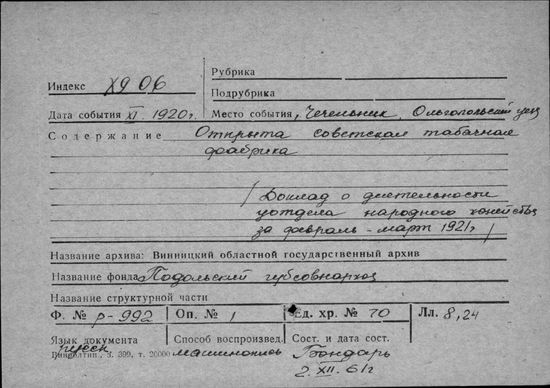 Рубрика
Индекс Х9 06
Подрубрика
Дата события XI 1920 г. Место события, Чечельник, Ольгопольский уезд
Содержание Открыта советская табачная
фабрика
/Доклад о деятельности
уотдела народного хозяйства
за февраль - март 1921 г/
Название архива: Винницкий областной государственный архив
Название фонда Подольский губсовнархоз
Название структурной части
Ф. № Р-992 Оп. № 1 Ед. хр. № 70 Лл. 8, 24
Язык документа Способ воспроизвед. Сост. и дата сост.
русск З. 399, т. 20000 машинопись Бондарь
2. XII. 61 г